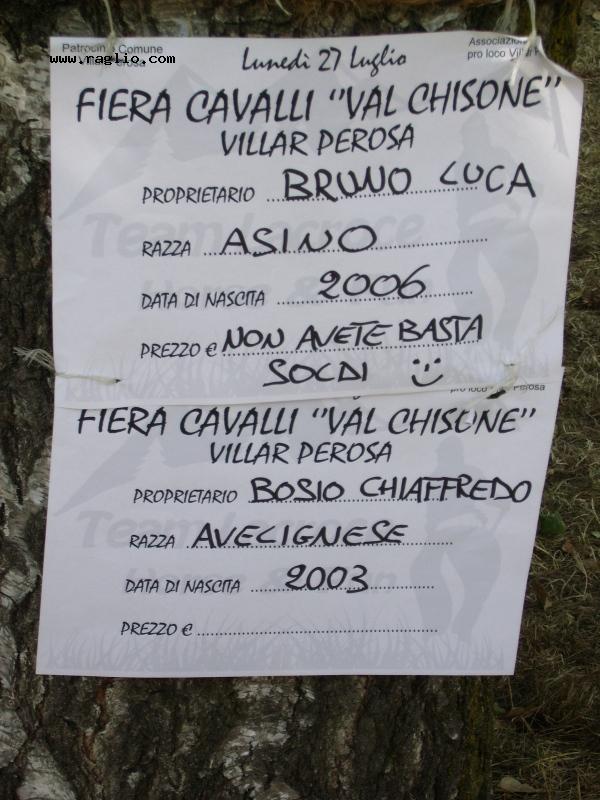 Patrocinio Comune
www.raglio.com
Associazion
pro loco Villar
Lunedì 27 Luglio
FIERA CAVALLI "VAL CHISONE"
VILLAR PEROSA
PROPRIETARIO BRUNO LUCA
Team Lacroce
RAZZA ASINO
DATA DI NASCITA 2006
PREZZO € NON AVETE BASTA
SOLDI
pro loco Perosa
FIERA CAVALLI "VAL CHISONE"
VILLAR PEROSA
PROPRIETARIO BOSIO CHIAFFREDO
RAZZA AVELIGNESE
DATA DI NASCITA 2003
PREZZO €